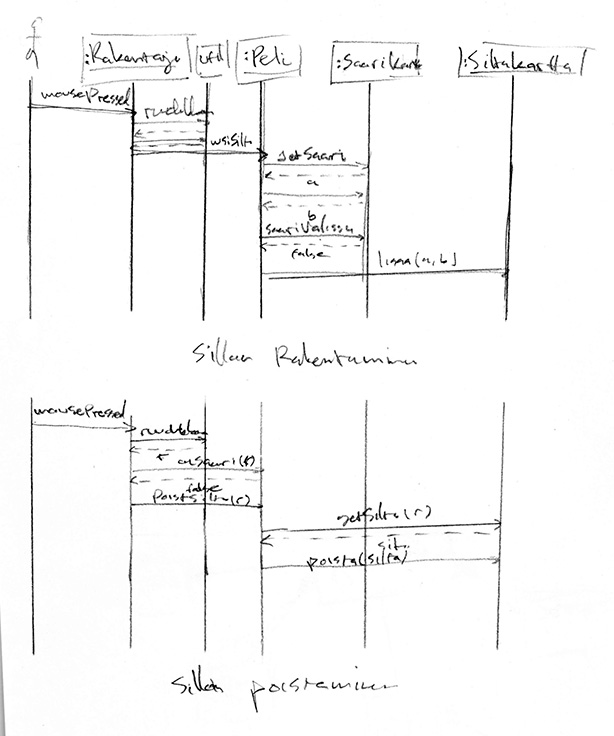 :Rakentaja util :Peli :Saarikart :Siltakartta
mousePressed
uusiSilt
getSaari
a
b
saariValissa
false
lisaa(a,b)
Sillan Rakentaminen
mousePressed
r onSaari(r)
false
poistaSilta(r)
getSilta(r)
silt.
poista(silta)
Sillan poistaminen